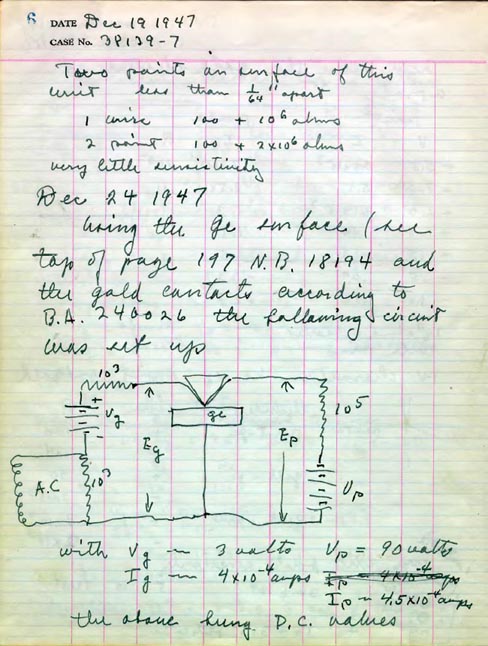 6
DATE Dec 19 1947
CASE No. 38139-7
Two points on surface of this
unit less than 1/64" apart
1 wire 100 + 10⁶ ohms
2 point 100 + 2x10⁶ ohms
very little sensitivity
Dec 24 1947
Using the Ge surface (see
top of page 197 N.B. 18194 and
the gold contacts according to
B.A. 240026 the following circuit
was set up
10³
+
Vg
-
Eg
ge
Ep
10⁵
A.C
10³
Vp
with Vg ~ 3 volts Vp = 90 volts
Ig ~ 4x10⁻⁴ amps Ip ~ 4x10⁻⁴ amps
Ip ~ 4.5x10⁻⁴ amps
the above being D.C. values